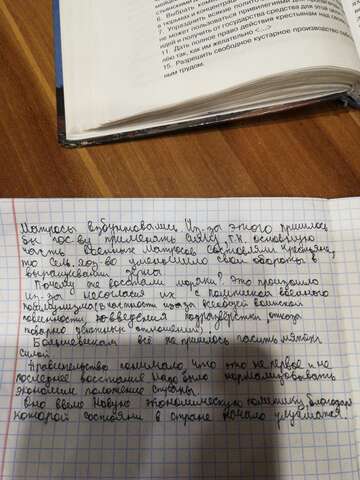 6. Выбрать
7. Упразднить всякие
не может пользоваться привилегиями для
идей и получить от государства средства для этой
11. Дать полное право действия крестьянам над
лею так, как им желательно <...>
15. Разрешить свободное кустарное производство
ным трудом.
Матросы взбунтовались. Из-за этого пришлось
бы гос-ву применять силу. Т.к. основную
часть военных матросов составляли крестьяне,
то сель.хоз-во уменьшило свои обороты в
выращивании зерна
Почему же восстали моряки? Это произошло
из-за несогласия их с политикой военного
коммунизма, в частности из-за всеобщей воинской
повинности, введения продразверстки, отказа
товарно денежных отношений.
Большевикам всё же пришлось гасить мятеж
силой
Правительство понимало, что это не первое и не
последнее восстание. Надо было нормализовывать
эконом. положение страны
оно ввело новую экономическую политику, благодаря
которой состояни в стране начало улучшатся.